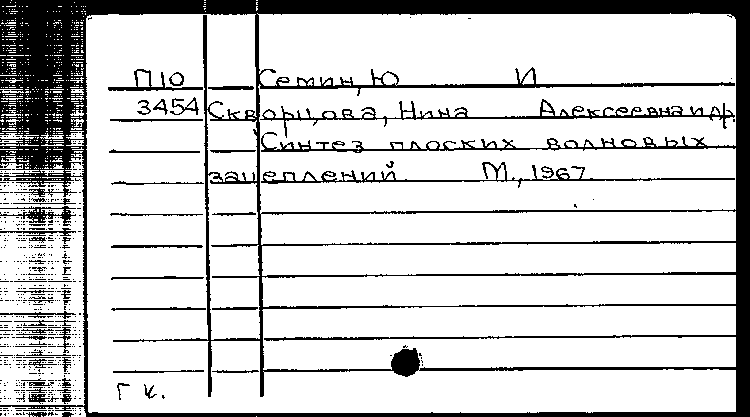 П10 Семин, Ю И
3454 Скворцова, Нина Алексеевна и др.
Синтез плоских волновых
зацеплений М., 1967.
Г К.